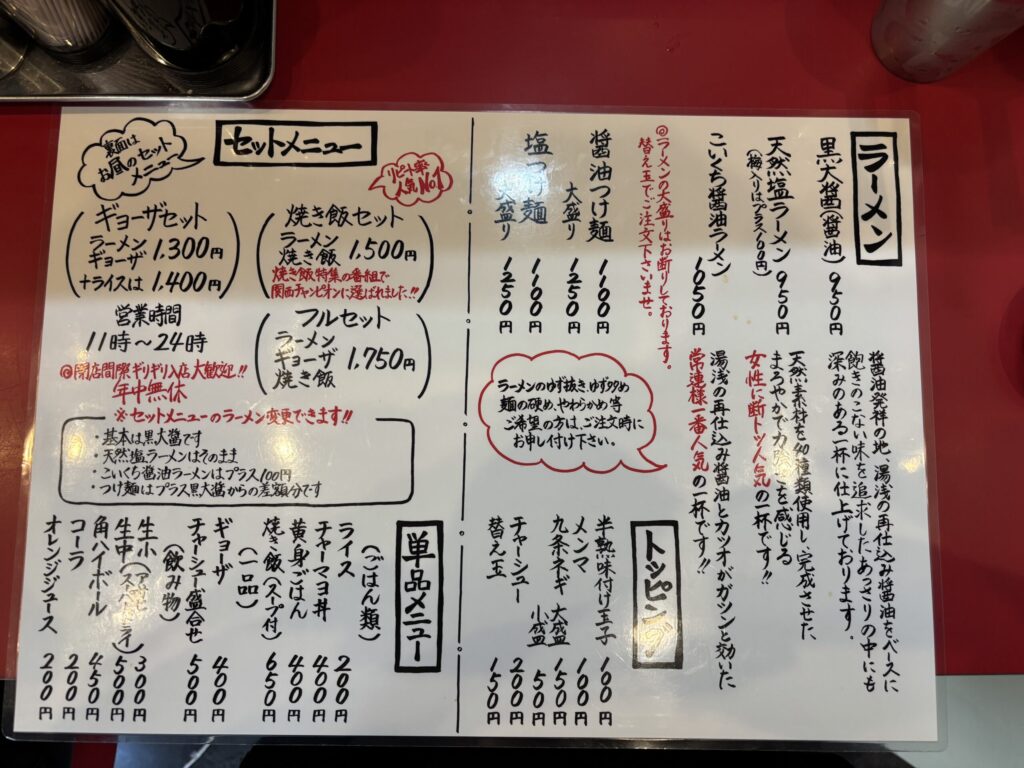 ラーメン
黒大醬(醬油)950円
醬油発祥の地、湯浅の再仕込み醬油をベースに
飽きのこない味を追求したあっさりの中にも
深みのある一杯に仕上げております。
天然塩ラーメン950円
(梅入りはプラス100円)
天然素材を40種類使用し、完成させた
まろやかで力強さを感じる
女性に断トツ人気の一杯です!!
こいくち醬油ラーメン1050円
湯浅の再仕込み醬油とカツオがガシンと効いた
常連様一番人気の一杯です!!
◎ラーメンの大盛りはお断りしております。
替え玉でご注文下さいませ。
醬油つけ麺1100円
大盛り1250円
塩つけ麺1100円
大盛り1250円
ラーメンのゆず抜き、ゆず多め
麺の硬め、やわらかめ等
ご希望の方は、ご注文時に
お申し付け下さい。
トッピング
半熟味付け玉子100円
メンマ100円
九条ネギ 大盛150円
小盛50円
チャーシュー200円
替え玉150円
セットメニュー
裏面は
お昼のセット
メニュー
リピート率
人気No1
ギョーザセット
ラーメン
ギョーザ 1.300円
+ライスは 1.400円
焼き飯セット
ラーメン
焼き飯 1.500円
焼き飯特集の番組で
関西チャンピオンに選ばれました!!
営業時間
11時〜24時
◎閉店間際ギリギリ入店大歓迎!!
年中無休
フルセット
ラーメン
ギョーザ 1.750円
焼き飯
※セットメニューのラーメン変更できます!!
・基本は黒大醬です
・天然塩ラーメンはそのまま
・こいくち醬油ラーメンはプラス100円
・つけ麺はプラス黒大醬からの差額分です
単品メニュー
(ごはん類)
ライス200円
チャーマヨ丼400円
黄身ごはん400円
焼き飯(スープ付)650円
(一品)
ギョーザ400円
チャーシュー盛合せ500円
(飲み物)
生小(アサヒ300円
生中(スーパードライ)500円
角ハイボール450円
コーラ200円
オレンジジュース200円